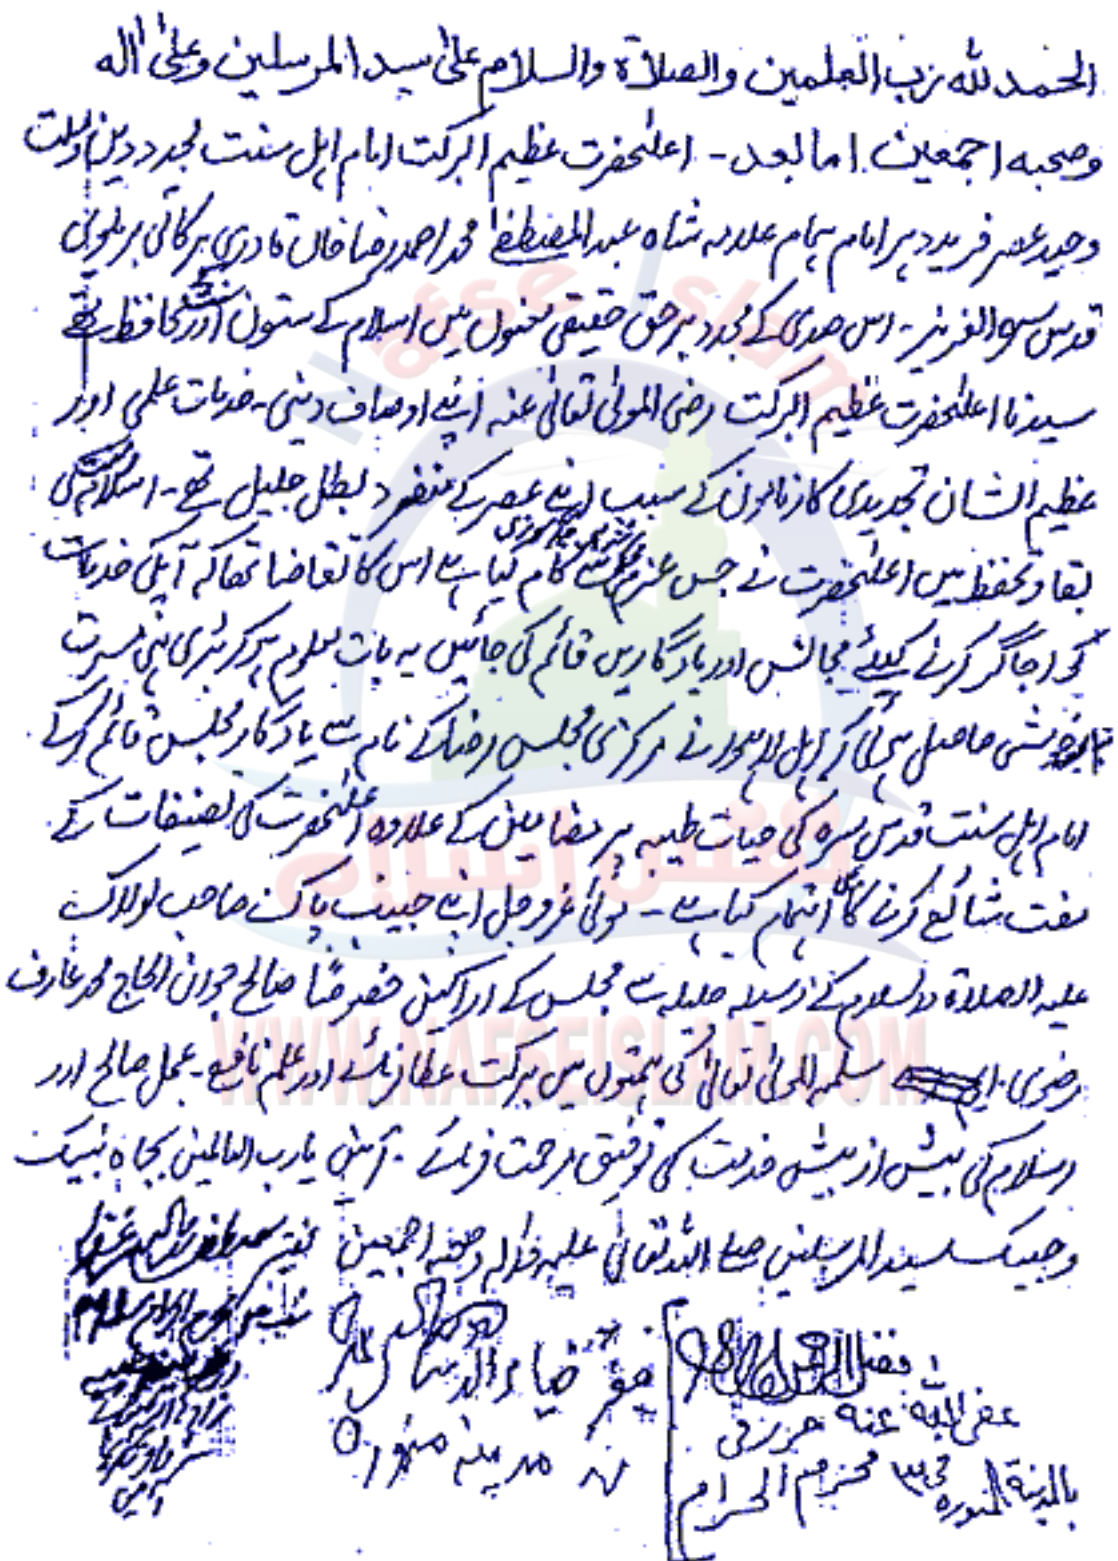 الحمد لله رب العلمین والصلاۃ والسلام علیٰ سید المرسلین وعلیٰ اٰلہ
وصحبہ اجمعین اما بعد - اعلیٰحضرت عظیم البرکت امام اہل سنت مجدد دین وملت
وحید عصر فرید دہر امام ہمام علامہ شاہ عبد المصطفےٰ محمد احمد رضا خاں قادری برکاتی بریلوی
قدس سرہ العزیز - اس صدی کے مجدد برحق حقیقی معنوں میں اسلام کے ستون اور محافظ تھے
سیدنا اعلیٰحضرت عظیم البرکت رضی المولیٰ تعالیٰ عنہ اپنے اوصاف دینی - خدمات علمی اور
عظیم الشان تجدیدی کارناموں کے سبب اپنے عصر کے منفرد بطل جلیل تھے - اسلام کی
بقا و تحفظ میں اعلیٰحضرت نے جس عزم سے کام کیا ہے اس کا تقاضا تھا کہ آپکی خدمات
کو اجاگر کرنے کیلئے مجالس اور یادگاریں قائم کی جائیں یہ بات معلوم ہو کر بڑی ہی مسرت
حاصل ہوئی کہ اہل لاہور نے مرکزی مجلس رضا کے نام سے یادگار مجلس قائم کرکے
امام اہل سنت قدس سرہ کی حیات طیبہ پر مضامین کے علاوہ اعلیٰحضرت کی تصنیفات کے
مفت شائع کرنے کا اہتمام کیا ہے - مولیٰ عزوجل اپنے حبیب پاک صاحب لولاک
علیہ الصلاۃ والسلام کے وسیلہ جلیلہ سے مجلس کے اراکین خصوصًا صالح جوان الحاج محمد عارف
رضوی سلمہ المولیٰ تعالیٰ کی ہمتوں میں برکت عطا فرمائے اور علم نافع - عمل صالح اور
اسلام کی بیش از بیش خدمت کی توفیق مرحمت فرمائے - آمین یارب العالمین بجاہ نبیک
وحبیبک سید المرسلین صلے اللہ تعالیٰ علیہ واٰلہ وصحبہ اجمعین فقیر
فقیر ضیاء الدین
مدینہ منورہ
فضل الرحمن
عفی اللہ عنہ
بالمدینۃ المنورہ محرم الحرام
Nafse Islam
نفس اسلام
WWW.NAFSEISLAM.COM